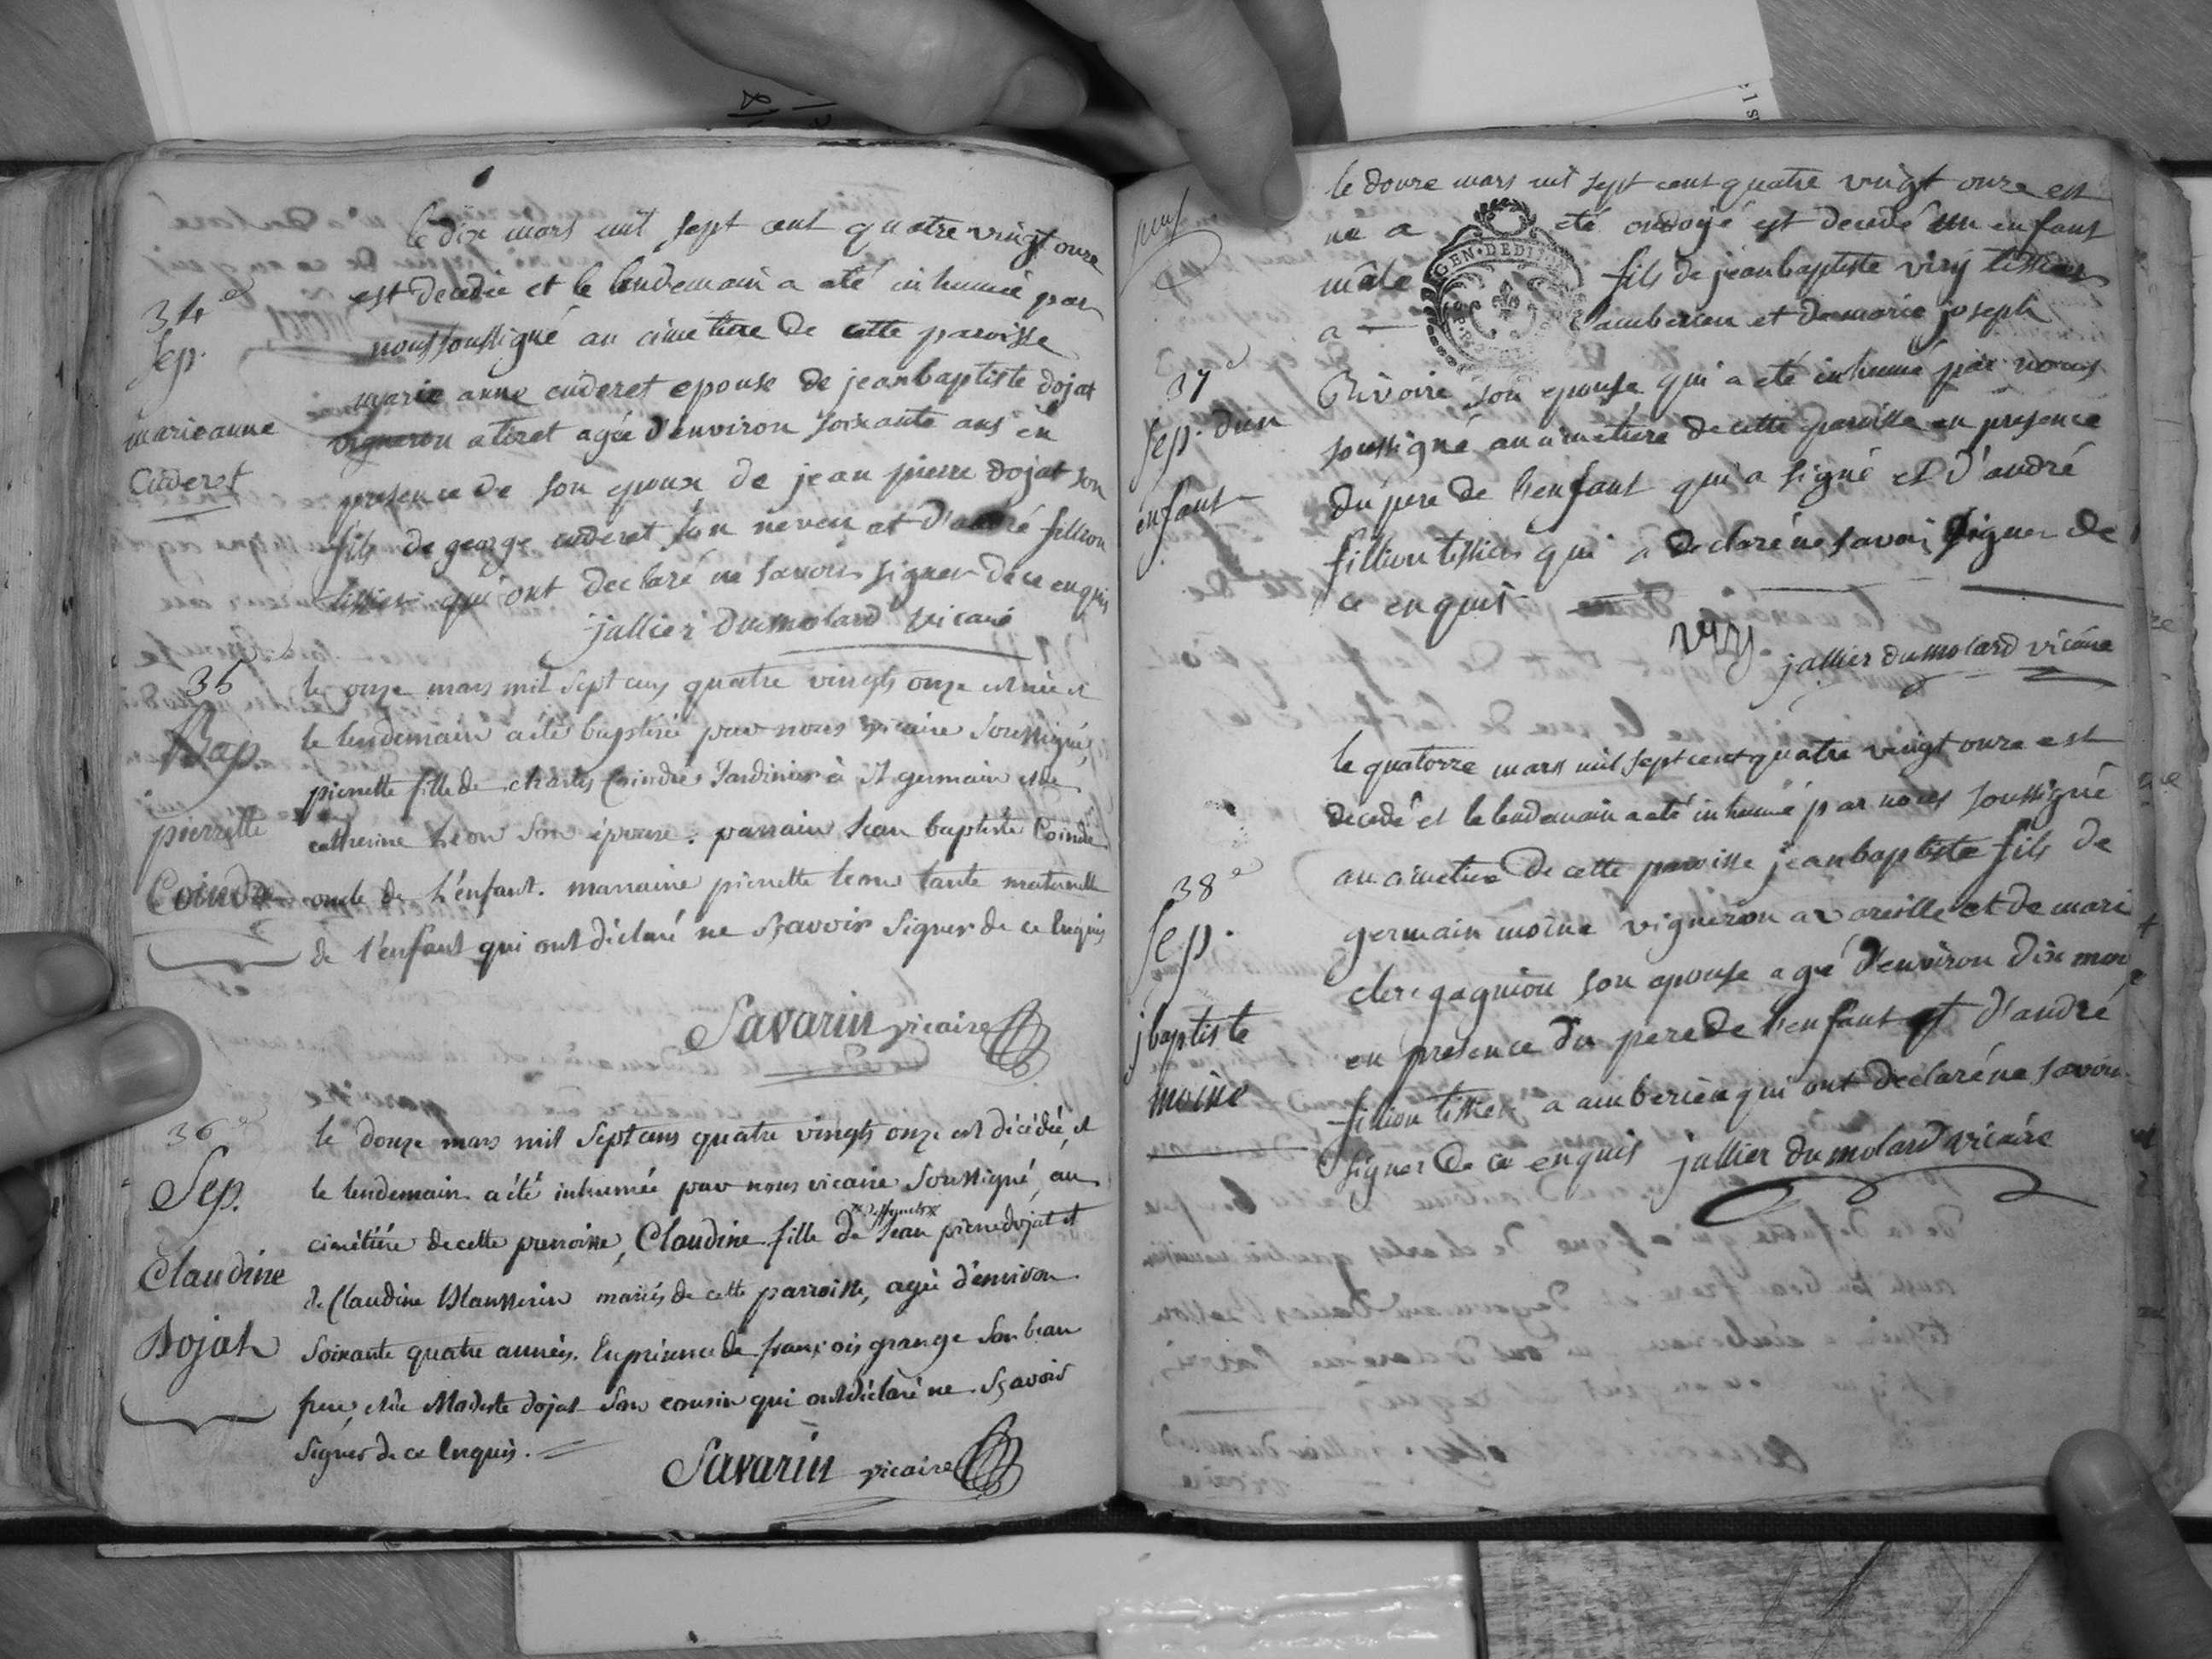 34e
Sep.
marie anne
Cuderet
le dix mars mil sept cent quatre vingt onze
est decedée et le lendemain a eté inhumée par
nous soussigné au cimetiere de cette paroisse
marie anne cuderet epouse de jean baptiste dojat
vigneron a tiret agée d'environ soixante ans en
presence de son epoux de jean pierre dojat son
fils de george cuderet son neveu et d'andré fillion
tissier qui ont declaré ne savoir signer de ce enquis
jallier dumolard vicaire
35
Bap.
pierrette
Coindre
le onze mars mil sept cens quatre vingts onze est née et
le lendemain a été baptisée par nous vicaire soussigné,
pierrette fille de charles Coindre Jardinier à St germain et de
catherine Leon son épouse. parrain Jean baptiste Coindre
oncle de L'enfant. marraine pierrette Leon tante maternelle
de l'enfant qui ont déclaré ne sçavoir signer de ce Enquis
Savarin vicaire
36e
Sep.
Claudine
Dojat
le douze mars mil sept cens quatre vingts onze est décédée, et
le lendemain a été inhumée par nous vicaire soussigné, au
cimétière de cette parroisse, Claudine fille de Jean pierre dojat et
de Claudine mariés de cette parroisse, agée d'environ
soixante quatre années. En présence de françois grange son beau
frere, et de Modeste dojat son cousin qui ont déclaré ne sçavoir
signer de ce Enquis.
Savarin vicaire
GEN · DEDI
37e
Sep. d'un
enfant
le douze mars mil sept cent quatre vingt onze est
né a eté ondoyé est decedé un enfant
mâle fils de jean baptiste viry tissier
a amberieu et de marie joseph
Rivoire son epouse qui a eté inhumé par nous
soussigné au cimetiere de cette paroisse en presence
du pere de l'enfant qui a signé et d'andré
fillion tissier qui a declaré ne savoir signer de
ce enquis
viry
jallier dumolard vicaire
38e
Sep.
j baptiste
moine
le quatorze mars mil sept cent quatre vingt onze est
decedé et le lendemain a eté inhumé par nous soussigné
au cimetiere de cette paroisse jean baptiste fils de
germain moine vigneron a vareille et de marie
claire gagnion son epouse agé d'environ dix mois
en presence du pere de l'enfant et d'andré
fillion tissier a amberieu qui ont declaré ne savoir
signer de ce enquis jallier dumolard vicaire